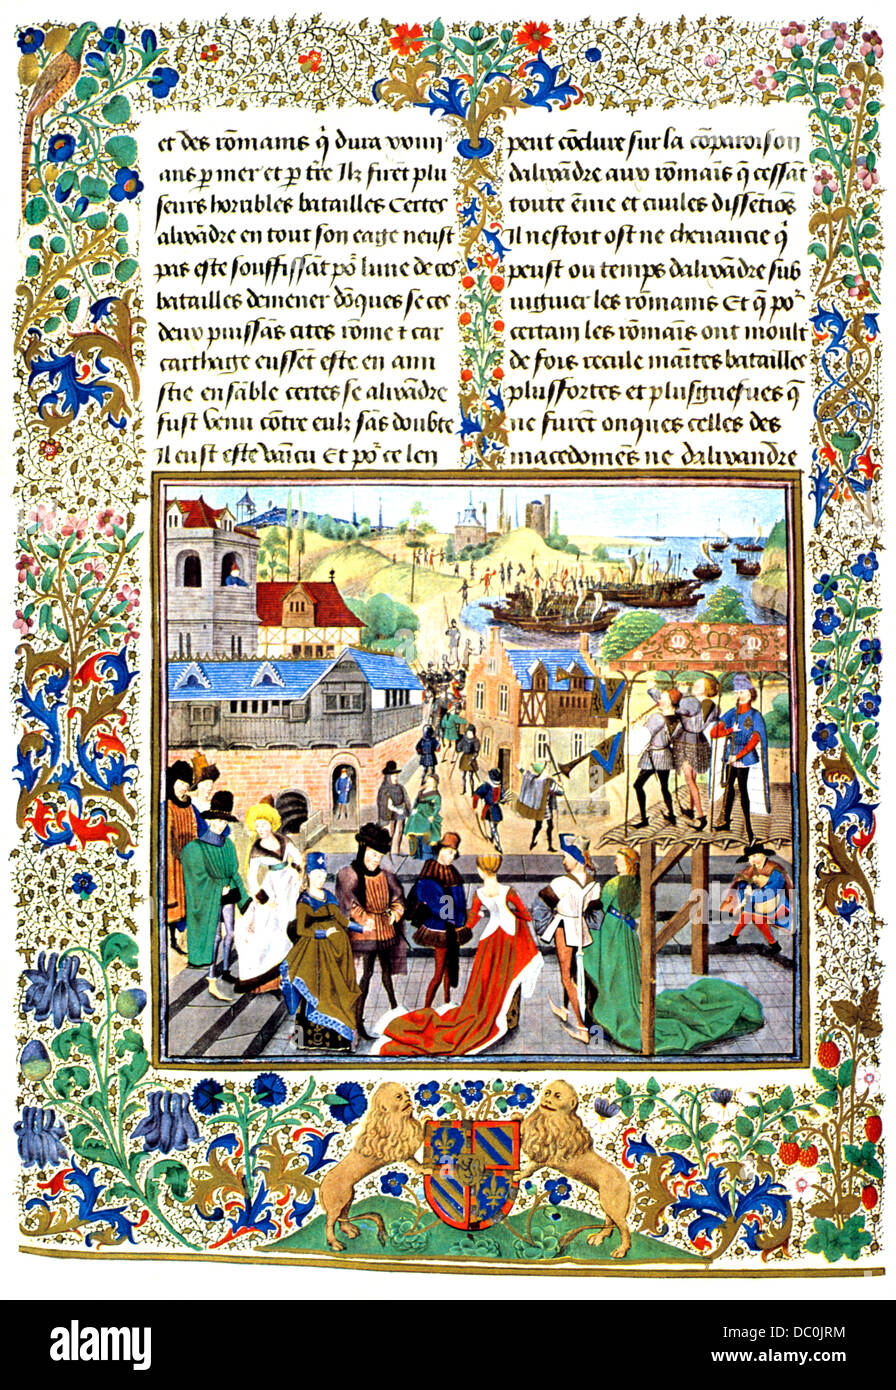 et des rõmains q̃ dura
ans p mer et p tr̃e Ilz furẽt plu
seurs horribles batailles Certes
alixãdre en tout son eage neust
pas este souffissãt poʳ lune de ces
batailles demener dõques se ces
deux puissãs cites rõme & car
carthage eussẽt este en ami
stie ensãble certes se alixãdre
fust venu cõtre eulx sãs doubte
Il eust este vãincu Et poʳ ce len
peut cõclure sur la cõparoison
dalixãdre aux rõmains q̃ cessãt
toute ẽuie et ciuiles dissẽtiõs
Il nestoit ost ne cheuaucie q̃
peust ou temps dalixãdre sub
iuguier les rõmains Et q̃ poʳ
certain les rõmaĩs ont moult
de fois recule maĩtes batailles
plus fortes et plus griefues q̃
ne furẽt onques celles des
macedoniẽs ne dalixandre
alamy
Image ID: DC0JRM
www.alamy.com